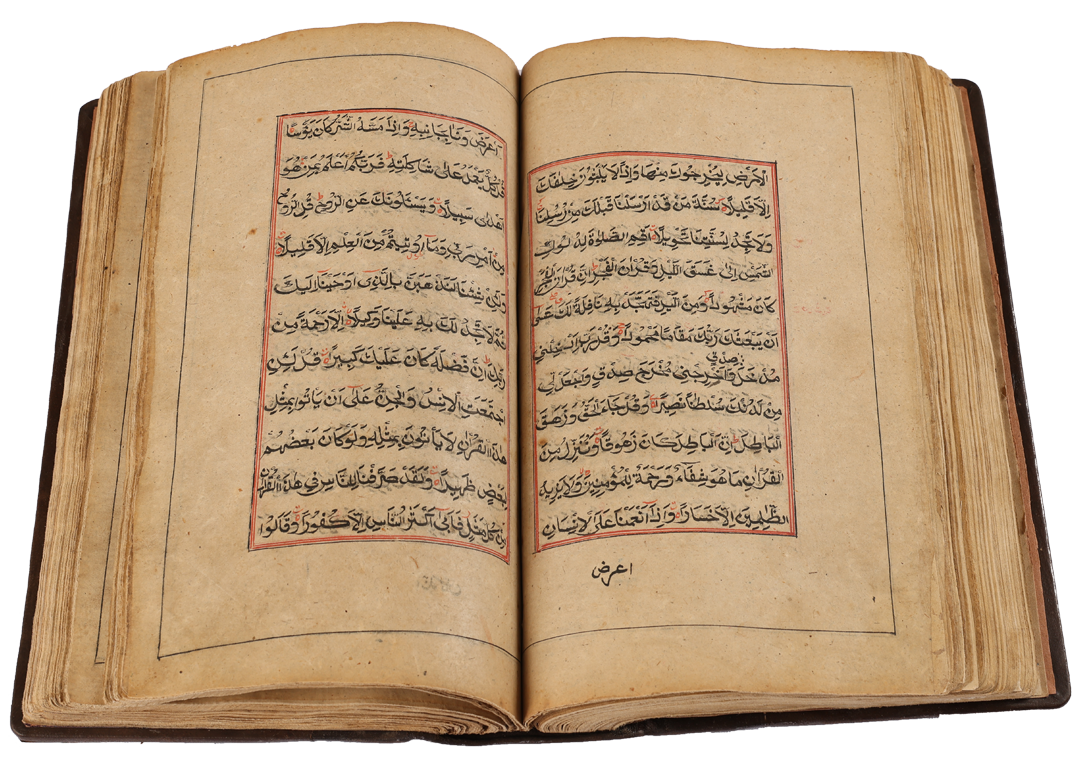 الْاَرْضِ لِيُخْرِجُوكَ مِنْهَا وَاِذًا لَا يَلْبَثُونَ خِلَافَكَ
اِلَّا قَلِيلًا سُنَّةَ مَنْ قَدْ اَرْسَلْنَا قَبْلَكَ مِنْ رُسُلِنَا
وَلَا تَجِدُ لِسُنَّتِنَا تَحْوِيلًا اَقِمِ الصَّلٰوةَ لِدُلُوكِ
الشَّمْسِ اِلٰى غَسَقِ اللَّيْلِ وَقُرْاٰنَ الْفَجْرِ اِنَّ قُرْاٰنَ الْفَجْرِ
كَانَ مَشْهُودًا وَمِنَ الَّيْلِ فَتَهَجَّدْ بِهِ نَافِلَةً لَكَ عَسٰى
اَنْ يَبْعَثَكَ رَبُّكَ مَقَامًا مَحْمُودًا وَقُلْ رَبِّ اَدْخِلْنِي
مُدْخَلَ صِدْقٍ وَاَخْرِجْنِي مُخْرَجَ صِدْقٍ وَاجْعَلْ لِي
مِنْ لَدُنْكَ سُلْطَانًا نَصِيرًا وَقُلْ جَاءَ الْحَقُّ وَزَهَقَ
الْبَاطِلُ اِنَّ الْبَاطِلَ كَانَ زَهُوقًا وَنُنَزِّلُ مِنَ
الْقُرْاٰنِ مَا هُوَ شِفَاءٌ وَرَحْمَةٌ لِلْمُؤْمِنِينَ وَلَا يَزِيدُ
الظَّالِمِينَ اِلَّا خَسَارًا وَاِذَا اَنْعَمْنَا عَلَى الْاِنْسَانِ
اعرض
اَعْرَضَ وَنَاٰ بِجَانِبِهِ وَاِذَا مَسَّهُ الشَّرُّ كَانَ يَؤُسًا
قُلْ كُلٌّ يَعْمَلُ عَلٰى شَاكِلَتِهِ فَرَبُّكُمْ اَعْلَمُ بِمَنْ هُوَ
اَهْدٰى سَبِيلًا وَيَسْئَلُونَكَ عَنِ الرُّوحِ قُلِ الرُّوحُ
مِنْ اَمْرِ رَبِّي وَمَا اُوتِيتُمْ مِنَ الْعِلْمِ اِلَّا قَلِيلًا
وَلَئِنْ شِئْنَا لَنَذْهَبَنَّ بِالَّذِي اَوْحَيْنَا اِلَيْكَ
ثُمَّ لَا تَجِدُ لَكَ بِهِ عَلَيْنَا وَكِيلًا اِلَّا رَحْمَةً مِنْ
رَبِّكَ اِنَّ فَضْلَهُ كَانَ عَلَيْكَ كَبِيرًا قُلْ لَئِنِ
اجْتَمَعَتِ الْاِنْسُ وَالْجِنُّ عَلٰى اَنْ يَاْتُوا بِمِثْلِ
هٰذَا الْقُرْاٰنِ لَا يَاْتُونَ بِمِثْلِهِ وَلَوْ كَانَ بَعْضُهُمْ
لِبَعْضٍ ظَهِيرًا وَلَقَدْ صَرَّفْنَا لِلنَّاسِ فِي هٰذَا الْقُرْاٰنِ
مِنْ كُلِّ مَثَلٍ فَاَبٰى اَكْثَرُ النَّاسِ اِلَّا كُفُورًا وَقَالُوا